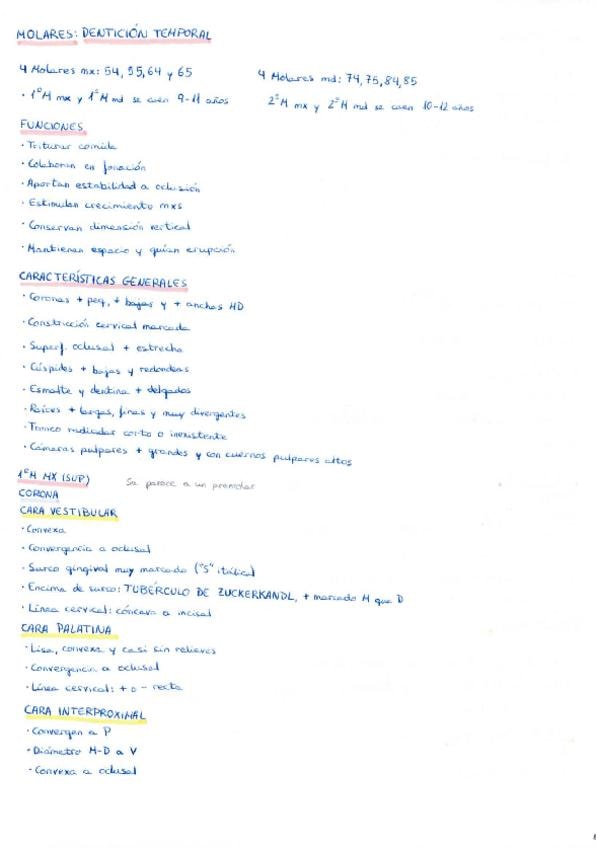 MOLARES: DENTICIÓN TEMPORAL
4 Molares mx: 54, 55, 64 y 65
4 Molares md: 74, 75, 84, 85
· 1ºM mx y 1ºM md se caen 9-11 años
2ºM mx y 2ºM md se caen 10-12 años
FUNCIONES
· Triturar comida
· Colaboran en fonación
· Aportan estabilidad a oclusión
· Estimulan crecimiento mxs
· Conservan dimensión vertical
· Mantienen espacio y guían erupción
CARACTERÍSTICAS GENERALES
· Coronas + peq, + bajas y + anchas MD
· Constricción cervical marcada
· Superf. oclusal + estrecha
· Cúspides + bajas y redondeas
· Esmalte y dentina + delgados
· Raíces + largas, finas y muy divergentes
· Tronco radicular corto o inexistente
· Cámaras pulpares + grandes y con cuernos pulpares altos
1ºM MX (SUP)
Se parece a un premolar
CORONA
CARA VESTIBULAR
· Convexa
· Convergencia a oclusal
· Surco gingival muy marcado ("S" itálica)
· Encima de surco: TUBÉRCULO DE ZUCKERKANDL, + marcado M que D
· Línea cervical: cóncava a incisal
CARA PALATINA
· Lisa, convexa y casi sin relieves
· Convergencia a oclusal
· Línea cervical: + o - recta
CARA INTERPROXIMAL
· Convergen a P
· Diámetro M-D a V
· Convexa a oclusal